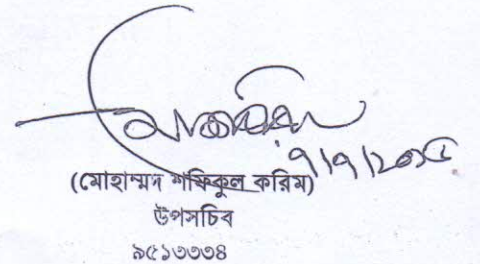 ৭/৭/২০১৫
(মোহাম্মদ শফিকুল করিম)
উপসচিব
৯৫১৩৩৩৪